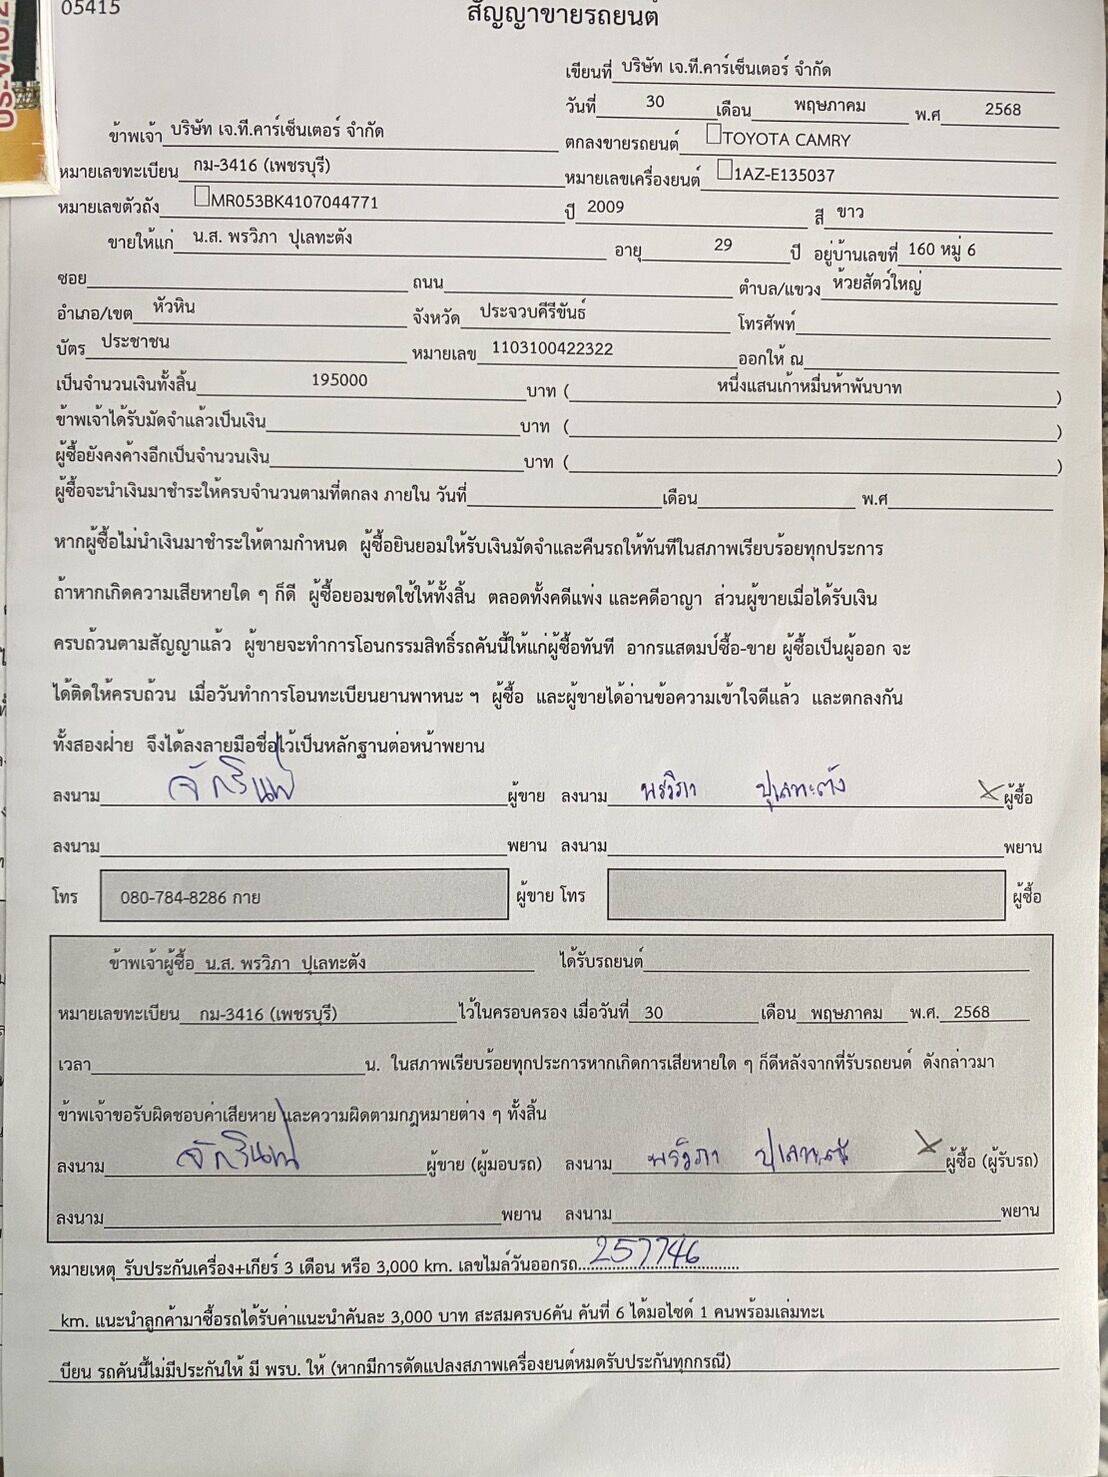 05415
สัญญาขายรถยนต์
เขียนที่ บริษัท เจ.ที.คาร์เซ็นเตอร์ จำกัด
วันที่ 30 เดือน พฤษภาคม พ.ศ 2568
ข้าพเจ้า บริษัท เจ.ที.คาร์เซ็นเตอร์ จำกัด ตกลงขายรถยนต์ TOYOTA CAMRY
หมายเลขทะเบียน กม-3416 (เพชรบุรี) หมายเลขเครื่องยนต์ 1AZ-E135037
หมายเลขตัวถัง MR053BK4107044771 ปี 2009 สี ขาว
ขายให้แก่ น.ส. พรวิภา ปุเลทะตัง อายุ 29 ปี อยู่บ้านเลขที่ 160 หมู่ 6
ซอย ถนน ตำบล/แขวง ห้วยสัตว์ใหญ่
อำเภอ/เขต หัวหิน จังหวัด ประจวบคีรีขันธ์ โทรศัพท์
บัตร ประชาชน หมายเลข 1103100422322 ออกให้ ณ
เป็นจำนวนเงินทั้งสิ้น 195000 บาท ( หนึ่งแสนเก้าหมื่นห้าพันบาท )
ข้าพเจ้าได้รับมัดจำแล้วเป็นเงิน บาท ( )
ผู้ซื้อยังคงค้างอีกเป็นจำนวนเงิน บาท ( )
ผู้ซื้อจะนำเงินมาชำระให้ครบจำนวนตามที่ตกลง ภายใน วันที่ เดือน พ.ศ
หากผู้ซื้อไม่นำเงินมาชำระให้ตามกำหนด ผู้ซื้อยินยอมให้รับเงินมัดจำและคืนรถให้ทันทีในสภาพเรียบร้อยทุกประการ
ถ้าหากเกิดความเสียหายใด ๆ ก็ดี ผู้ซื้อยอมชดใช้ให้ทั้งสิ้น ตลอดทั้งคดีแพ่ง และคดีอาญา ส่วนผู้ขายเมื่อได้รับเงิน
ครบถ้วนตามสัญญาแล้ว ผู้ขายจะทำการโอนกรรมสิทธิ์รถคันนี้ให้แก่ผู้ซื้อทันที อากรแสตมป์ซื้อ-ขาย ผู้ซื้อเป็นผู้ออก จะ
ได้ติดให้ครบถ้วน เมื่อวันทำการโอนทะเบียนยานพาหนะ ฯ ผู้ซื้อ และผู้ขายได้อ่านข้อความเข้าใจดีแล้ว และตกลงกัน
ทั้งสองฝ่าย จึงได้ลงลายมือชื่อไว้เป็นหลักฐานต่อหน้าพยาน
ลงนาม จักรินทร์ ผู้ขาย ลงนาม พรวิภา ปุเลทะตัง X ผู้ซื้อ
ลงนาม พยาน ลงนาม พยาน
โทร 080-784-8286 กาย ผู้ขาย โทร ผู้ซื้อ
ข้าพเจ้าผู้ซื้อ น.ส. พรวิภา ปุเลทะตัง ได้รับรถยนต์
หมายเลขทะเบียน กม-3416 (เพชรบุรี) ไว้ในครอบครอง เมื่อวันที่ 30 เดือน พฤษภาคม พ.ศ. 2568
เวลา น. ในสภาพเรียบร้อยทุกประการหากเกิดการเสียหายใด ๆ ก็ดีหลังจากที่รับรถยนต์ ดังกล่าวมา
ข้าพเจ้าขอรับผิดชอบค่าเสียหาย และความผิดตามกฎหมายต่าง ๆ ทั้งสิ้น
ลงนาม จักรินทร์ ผู้ขาย (ผู้มอบรถ) ลงนาม พรวิภา ปุเลทะตัง X ผู้ซื้อ (ผู้รับรถ)
ลงนาม พยาน ลงนาม พยาน
หมายเหตุ รับประกันเครื่อง+เกียร์ 3 เดือน หรือ 3,000 km. เลขไมล์วันออกรถ 257746
km. แนะนำลูกค้ามาซื้อรถได้รับค่าแนะนำคันละ 3,000 บาท สะสมครบ6คัน คันที่ 6 ได้มอไซด์ 1 คนพร้อมเล่มทะเ
บียน รถคันนี้ไม่มีประกันให้ มี พรบ. ให้ (หากมีการดัดแปลงสภาพเครื่องยนต์หมดรับประกันทุกกรณี)